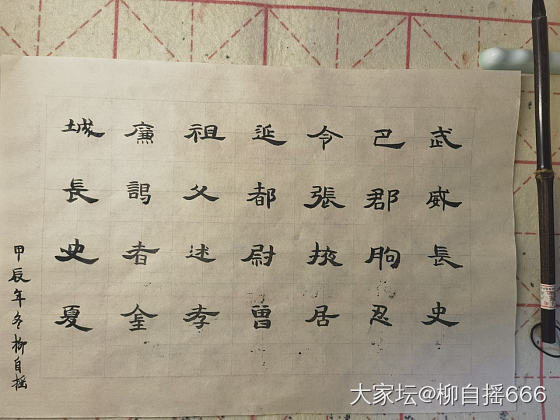 武威長史
巴郡朐忍
令張掖居
延都尉曾
祖父述孝
廉謁者金
城長史夏
甲辰年冬柳自摇
大家坛@柳自摇666